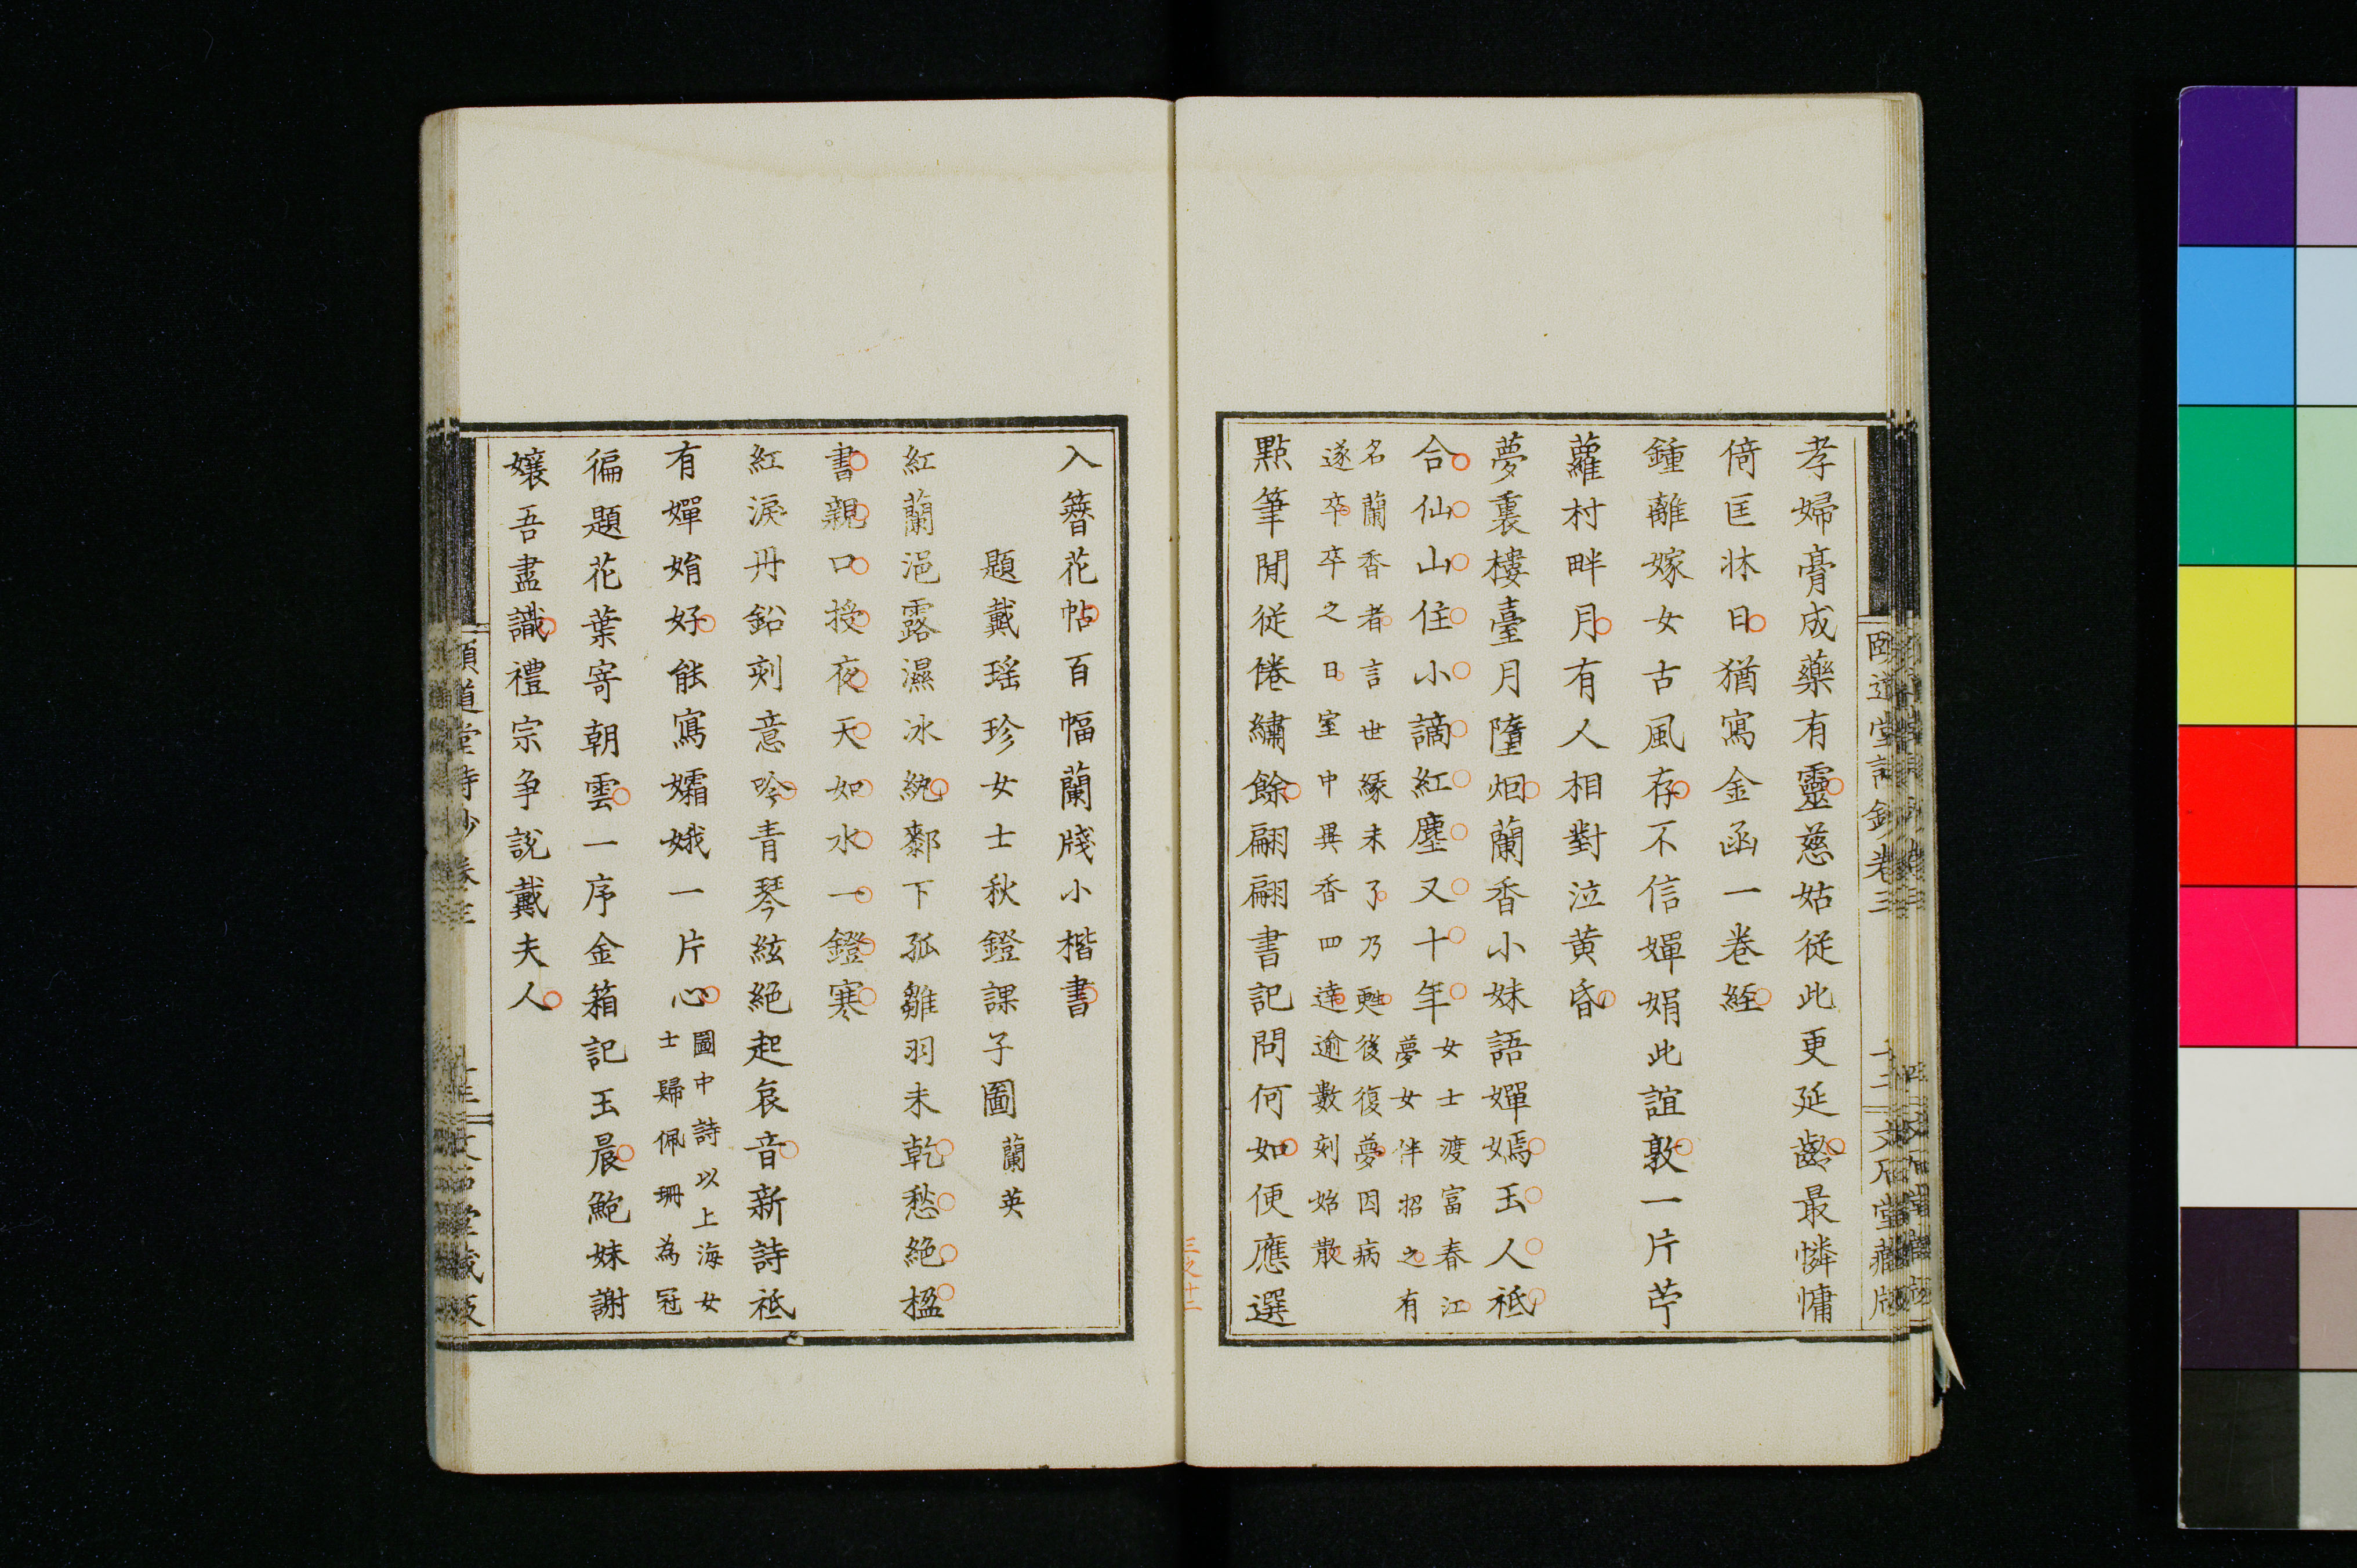 孝婦膏成藥有靈慈姑從此更延齡最憐慵
倚匡牀日猶寫金函一卷經
鍾離嫁女古風存不信嬋娟此誼敦一片苧
蘿村畔月有人相對泣黃昏
夢裏樓臺月墮烟蘭香小妹語嬋嫣玉人祗
合仙山住小謫紅塵又十年
女士渡富春江
夢女伴招之有
名蘭香者言世緣未了乃甦後復夢因病
遂卒卒之日室中異香四達逾數刻始散
點筆閒從倦繡餘翩翩書記問何如便應選
三之十二
入簪花帖百幅蘭牋小楷書
題戴瑤珍女士秋鐙課子圖 蘭英
紅蘭浥露濕冰紈鄴下孤雛羽未乾愁絕楹
書親口授夜天如水一鐙寒
紅淚丹鉛刻意吟青琴絃絕起哀音新詩祗
有嬋娟好能寫孀娥一片心
圖中詩以上海女
士歸佩珊為冠
徧題花葉寄朝雲一序金箱記玉晨鮑妹謝
孃吾盡識禮宗爭說戴夫人
頤道堂詩鈔卷三